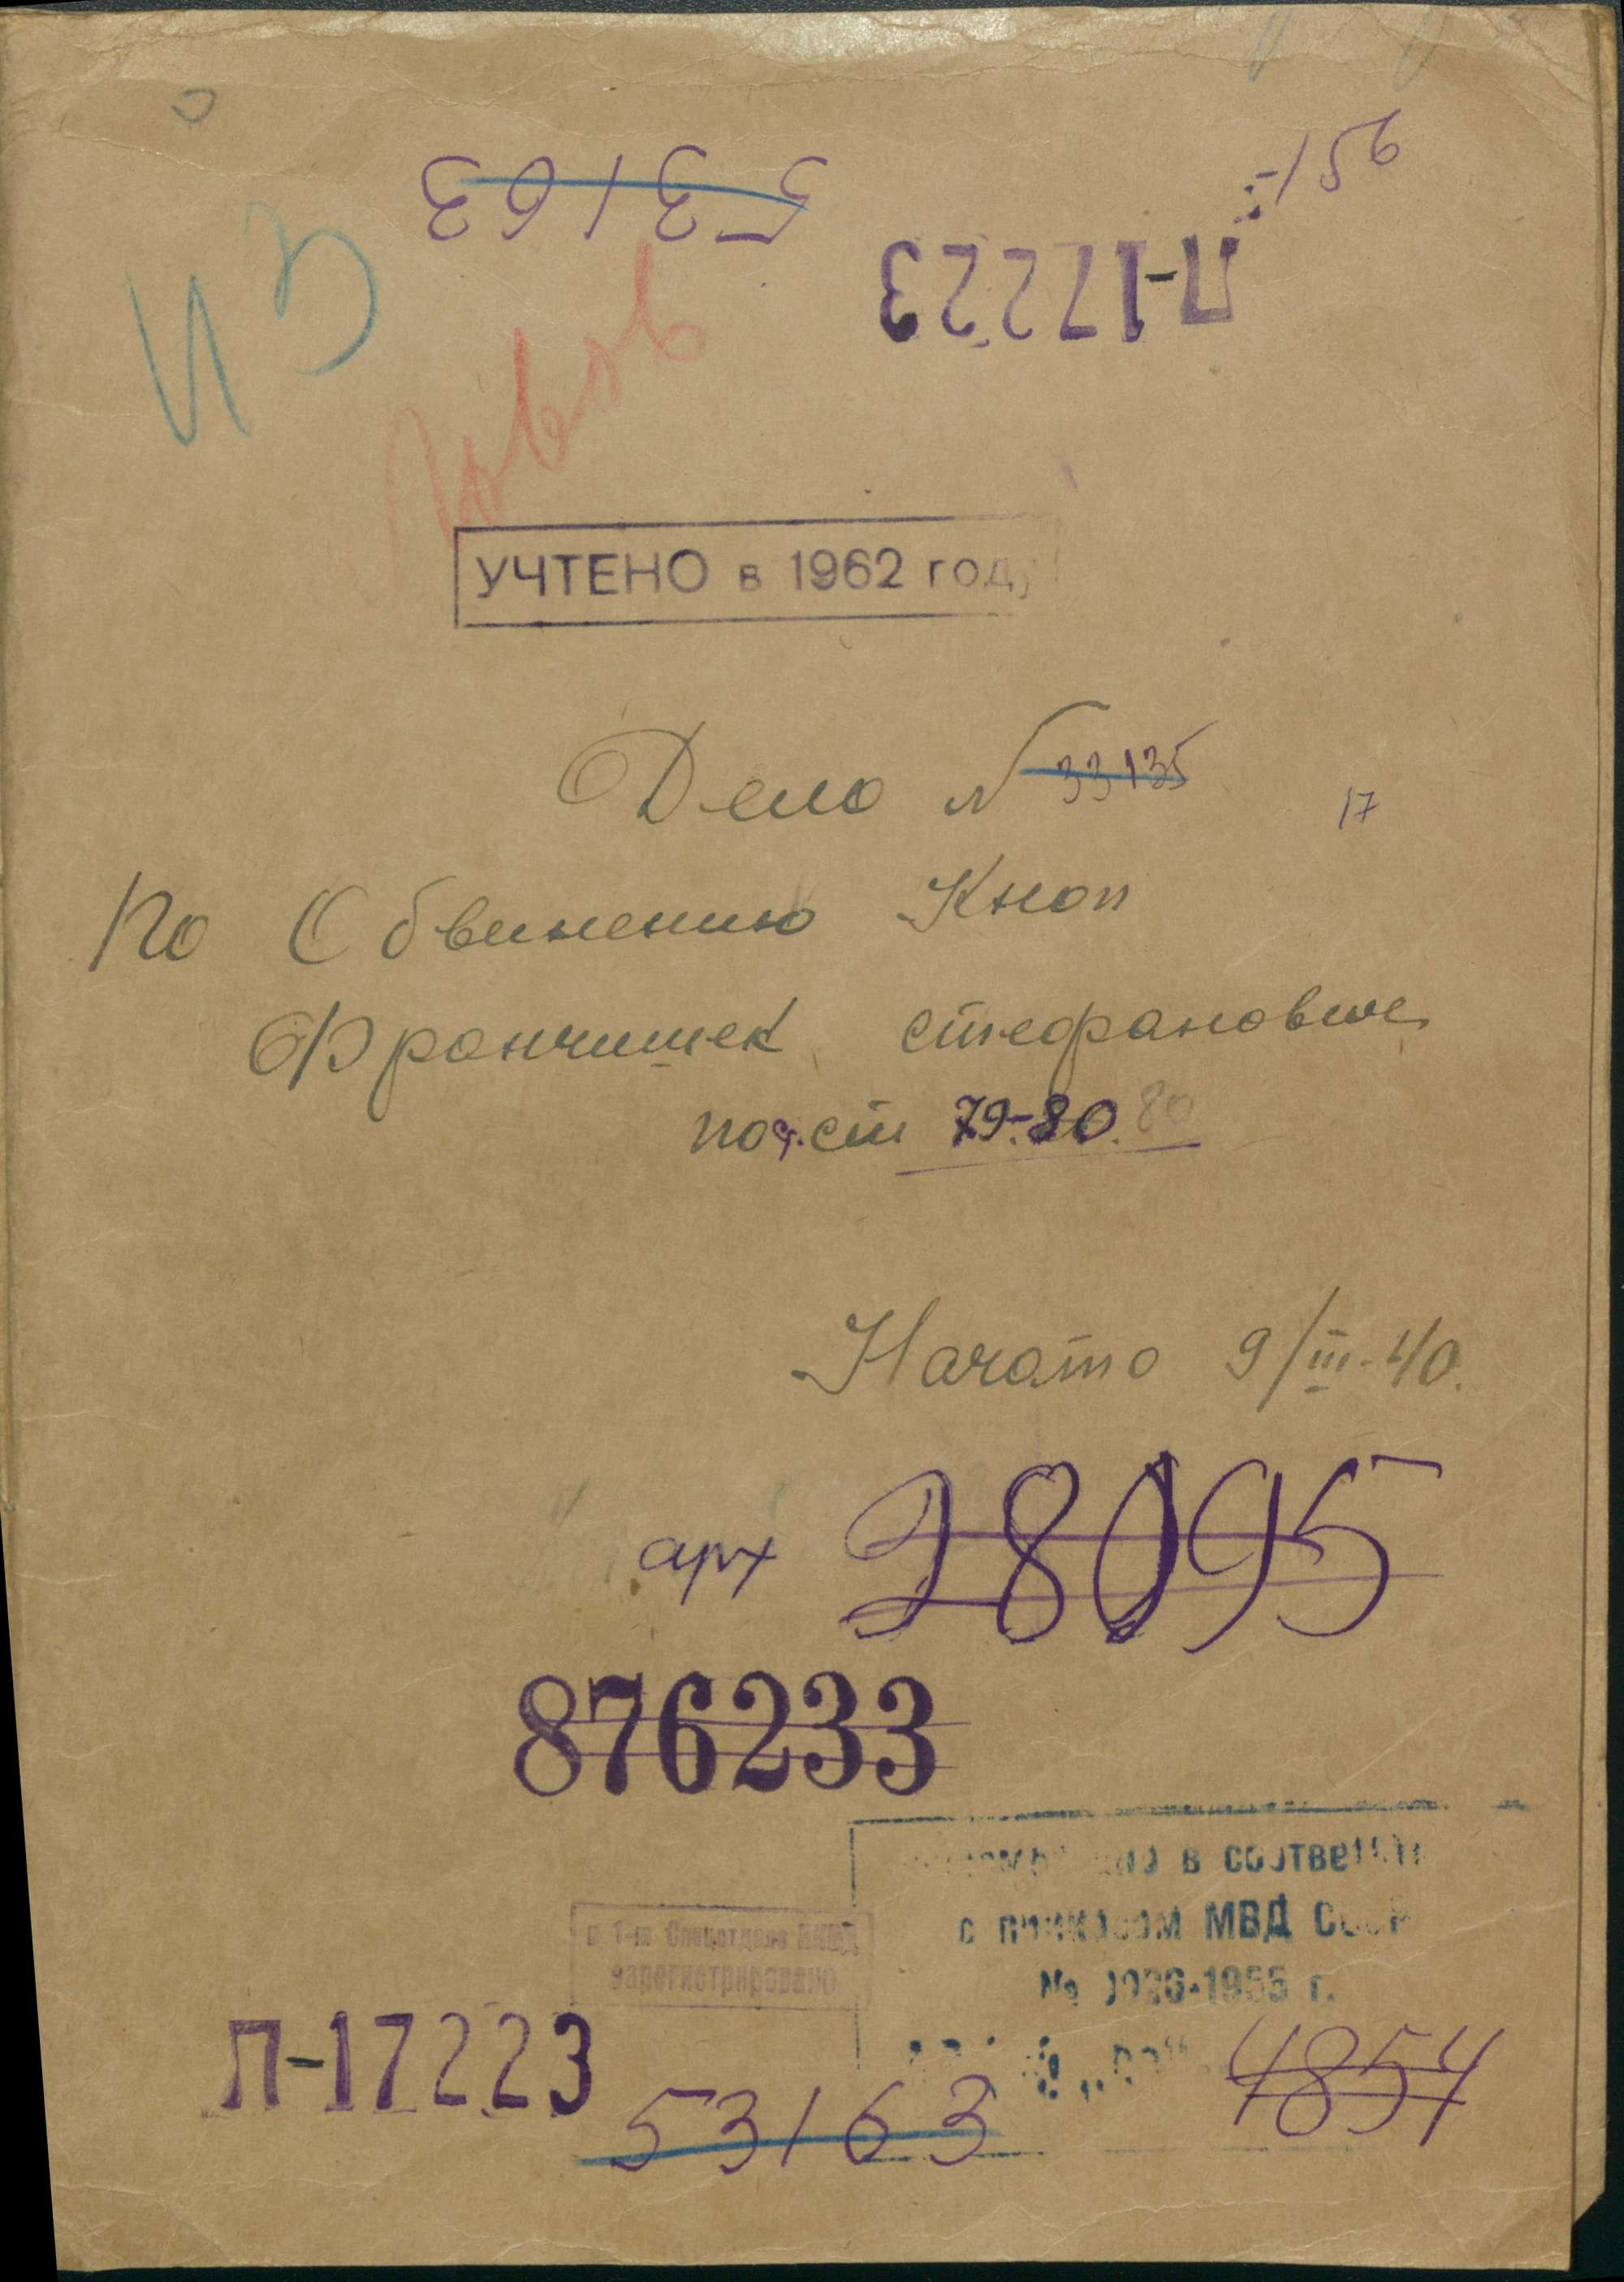 53163
-156
П-17223
ИЗ
Львов
УЧТЕНО в 1962 году
Дело № 33135
17
По Обвинению Кноп
Францишек стефановиче
по ст 79-80. 80
Начато 9/III-40.
арх 28095
876233
в соответств
с приказом МВД СССР
№ 0026-1955 г.
в 1-м Спецотделе НКВД
зарегистрировано
П-17223
4854
53163